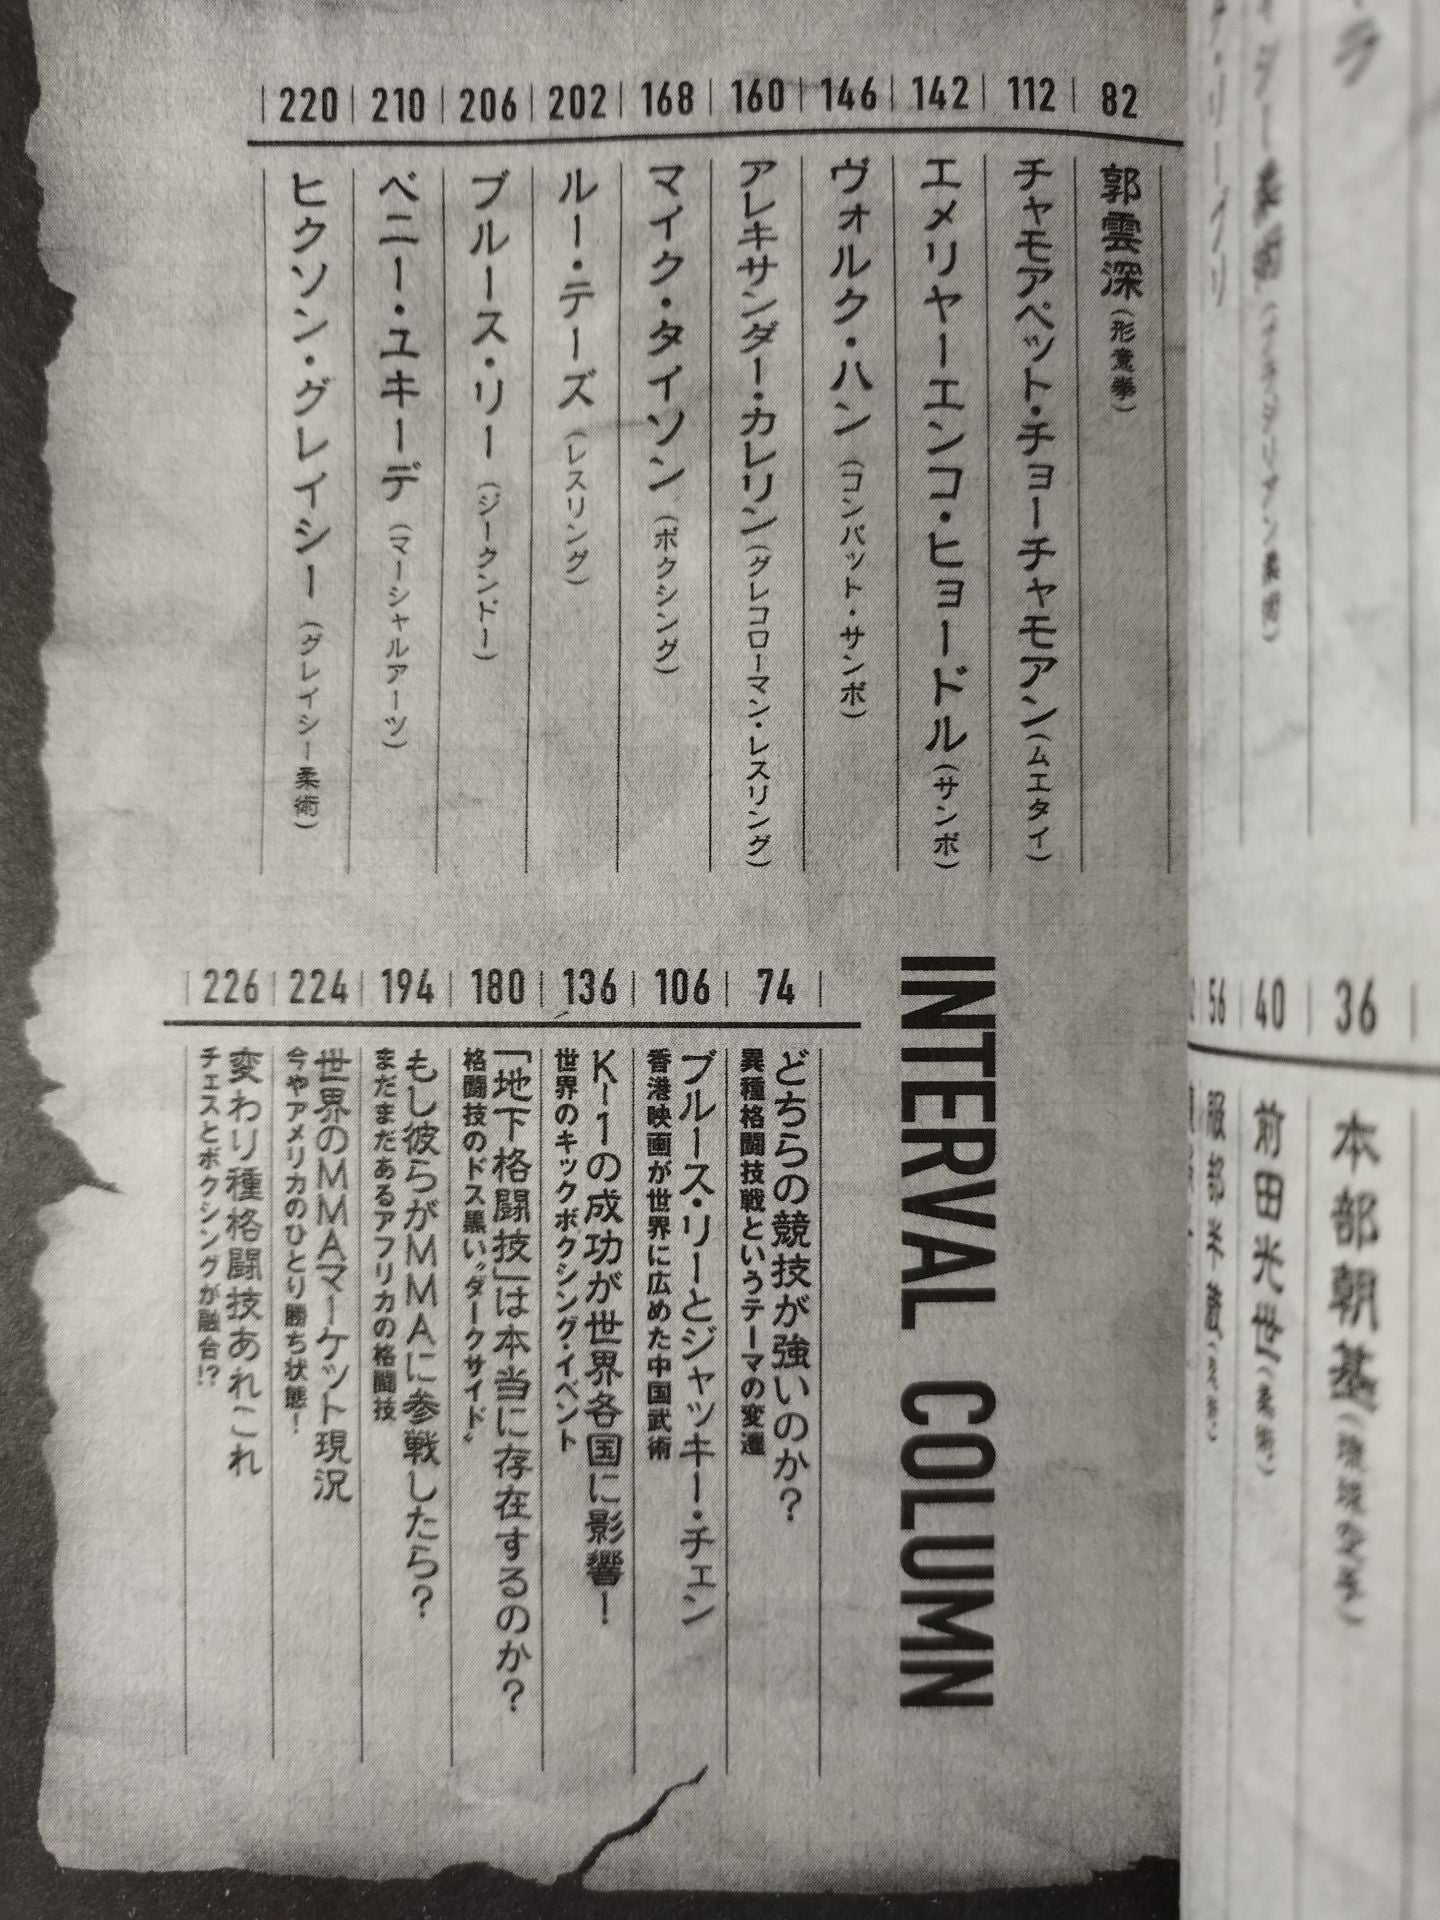 36
本部朝基
40
前田光世(柔術)
56
82
郭雲深(形意拳)
112
チャモアペット・チョーチャモアン(ムエタイ)
142
エメリヤーエンコ・ヒョードル(サンボ)
146
ヴォルク・ハン(コンバット・サンボ)
160
アレキサンダー・カレリン(グレコローマン・レスリング)
168
マイク・タイソン(ボクシング)
202
ルー・テーズ(レスリング)
206
ブルース・リー(ジークンドー)
210
ベニー・ユキーデ(マーシャルアーツ)
220
ヒクソン・グレイシー(グレイシー柔術)
INTERVAL COLUMN
74
どちらの競技が強いのか?
異種格闘技戦というテーマの変遷
106
ブルース・リーとジャッキー・チェン
香港映画が世界に広めた中国武術
136
K-1の成功が世界各国に影響!
世界のキックボクシング・イベント
180
「地下格闘技」は本当に存在するのか?
格闘技のドス黒い〝ダークサイド〟
194
もし彼らがMMAに参戦したら?
まだまだあるアフリカの格闘技
224
世界のMMAマーケット現況
今やアメリカのひとり勝ち状態!
226
変わり種格闘技あれこれ
チェスとボクシングが融合!?